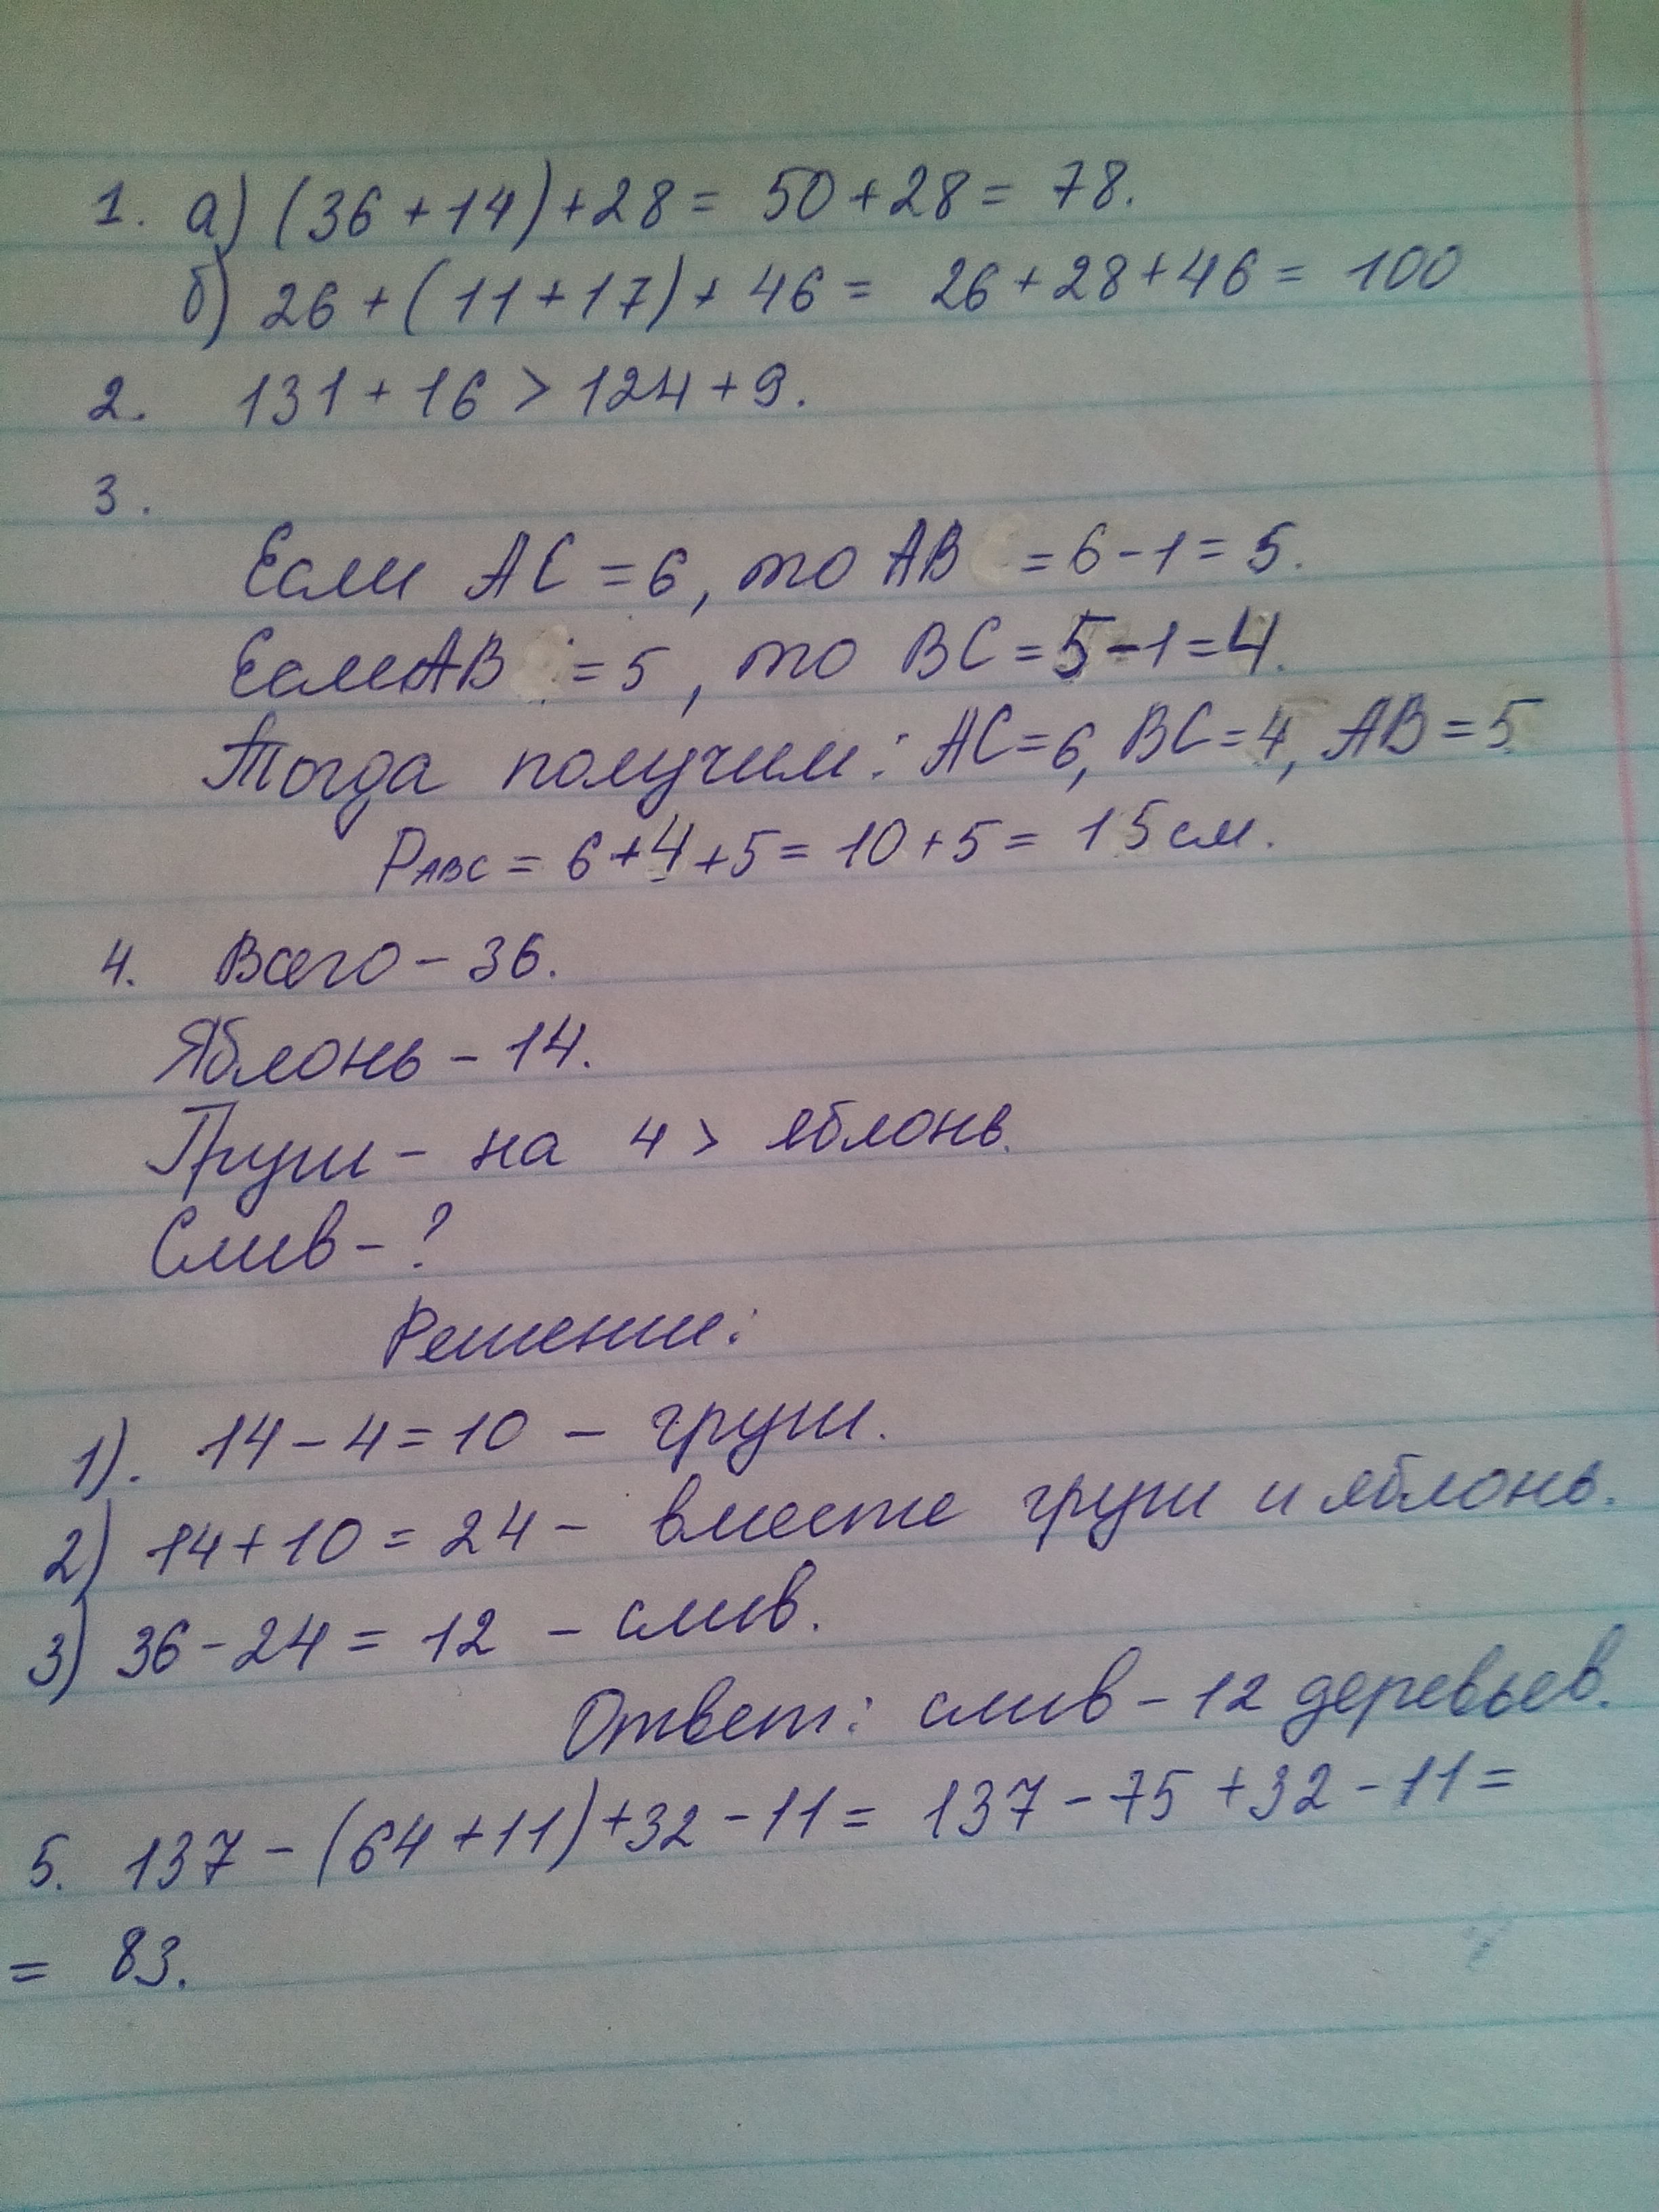 1. а) (36 + 14) + 28 = 50 + 28 = 78.
б) 26 + (11 + 17) + 46 = 26 + 28 + 46 = 100
2. 131 + 16 > 124 + 9.
3.
Если AC = 6, то AB = 6 - 1 = 5.
Если AB = 5, то BC = 5 - 1 = 4.
Тогда получим: AC = 6, BC = 4, AB = 5
PABC = 6 + 4 + 5 = 10 + 5 = 15 см.
4. Всего - 36.
Яблонь - 14.
Груши - на 4 > яблонь.
Слив - ?
Решении:
1). 14 - 4 = 10 - груши.
2) 14 + 10 = 24 - вместе груши и яблонь.
3) 36 - 24 = 12 - слив.
Ответ: слив - 12 деревьев.
5. 137 - (64 + 11) + 32 - 11 = 137 - 75 + 32 - 11 =
= 83.